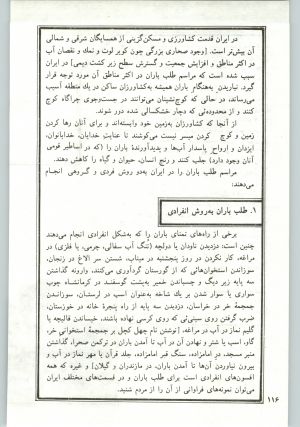 در ایران قدمت کشاورزی و مسکن‌گزینی از همسایگان شرقی و شمالی
آن بیش‌تر است. [وجود صحاری بزرگی چون کویر لوت و نمک و نقصان آب
در اکثر مناطق و افزایش جمعیت و گسترش سطح زیر کشت دیمی] در ایران
سبب شده است که مراسم طلب باران در اکثر مناطق آن مورد توجه قرار
گیرد. نباریدن به‌هنگام باران همیشه به‌کشاورزان ساکن در یك منطقه آسیب
می‌رساند، در حالی که کوچ‌نشینان می‌توانند در جست‌وجوی چراگاه کوچ
کنند و از محدوده‌ئی که دچار خشکسالی شده دور شوند.
از آنجا که کشاورزان به‌زمین خود وابسته‌اند و برای آنان رها کردن
زمین و کوچ کردن میسر نیست می‌کوشند تا عنایت خدایان، خدابانوان،
ایزدان و ارواح پاسدار آب‌ها و پدیدآورنده‌ باران را (که در اساطیر قومی
آنان وجود دارد) جلب کنند و رنج انسان، حیوان و گیاه را کاهش دهند.
مراسم طلب باران را در ایران به‌دو روش فردی و گروهی انجام
می‌دهند:
۱. طلب باران به‌روش انفرادی
برخی از راه‌های تمنای باران را که به‌شکل انفرادی انجام می‌دهند
چنین است: دزدیدن ناودان یا دولچه (تنگ آب سفالی، چرمی، یا فلزی) در
مراغه، کار نکردن در روز پنجشنبه در میناب، شستن سر الاغ در زنجان،
سوزاندن استخوان‌هائی که از گورستان گردآوری می‌کنند، وارونه گذاشتن
سه پایه زیر دیگ و چسباندن خمیر به‌پشت گوسفند در کرمانشاه، چوب
سواری یا سوار شدن بر یك شاخه به‌عنوان اسب در لرستان، سوزانیدن
جمجمهٔ خر در خراسان، دزدیدن سه پایه از راه پنجرهٔ خانه در خوزستان،
ضرب گرفتن روی سینی‌ئی که روی کرسی نهاده باشند، خیساندن قالیچه یا
گلیم نماز در آب در مراغه، [نوشتن نام چهل کچل بر جمجمهٔ استخوانی خر،
گاو، اسب یا شتر و نهادن آن در آب تا آمدن باران در ترکمن صحرا، گذاشتن
منبر مسجد، در امامزاده، سنگ قبر امامزاده، جلد قرآن یا مهر نماز در آب و
بیرون نیاوردن آن‌ها تا آمدن باران، در مازندران و گیلان] و غیره که همه
افسون‌های انفرادی است برای طلب باران و در قسمت‌های مختلف ایران
می‌توان نمونه‌های فراوانی از آن را از مردم شنید.
۱۱۶